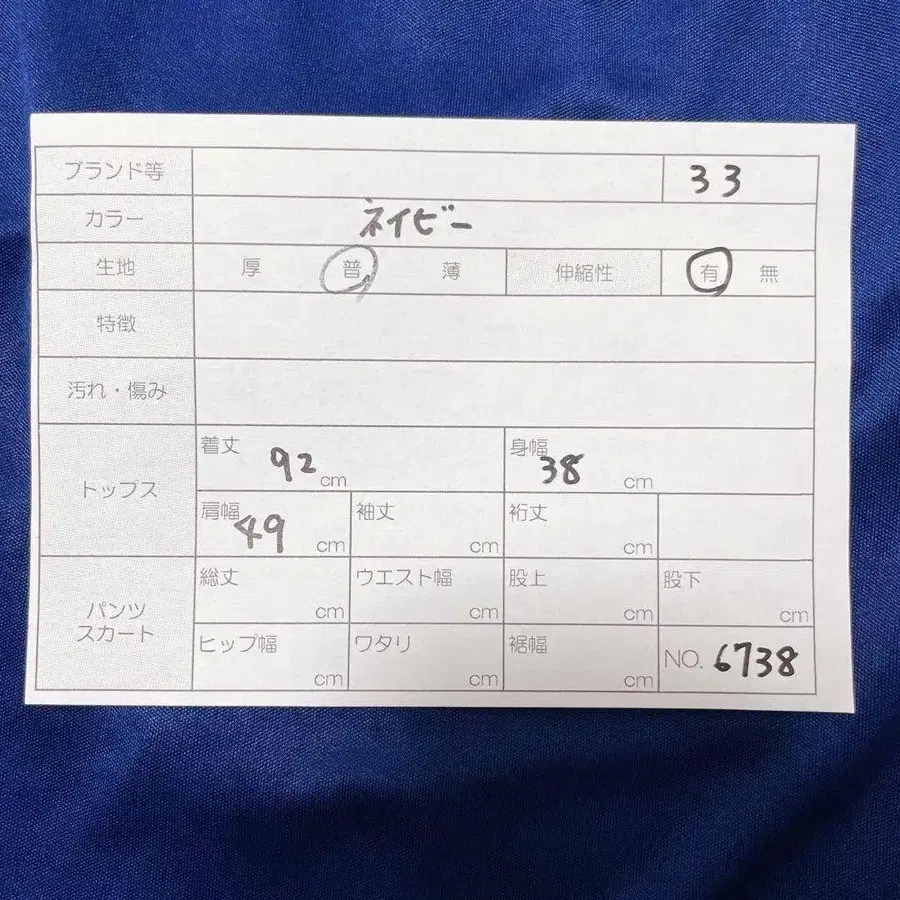 ブランド等 33
カラー ネイビー
生地 厚 普 薄 伸縮性 有 無
特徴
汚れ・傷み
トップス
着丈 92 cm 身幅 38 cm
肩幅 49 cm 袖丈 cm 裄丈 cm
パンツ
スカート
総丈 cm ウエスト幅 cm 股上 cm 股下 cm
ヒップ幅 cm ワタリ cm 裾幅 cm NO. 6738